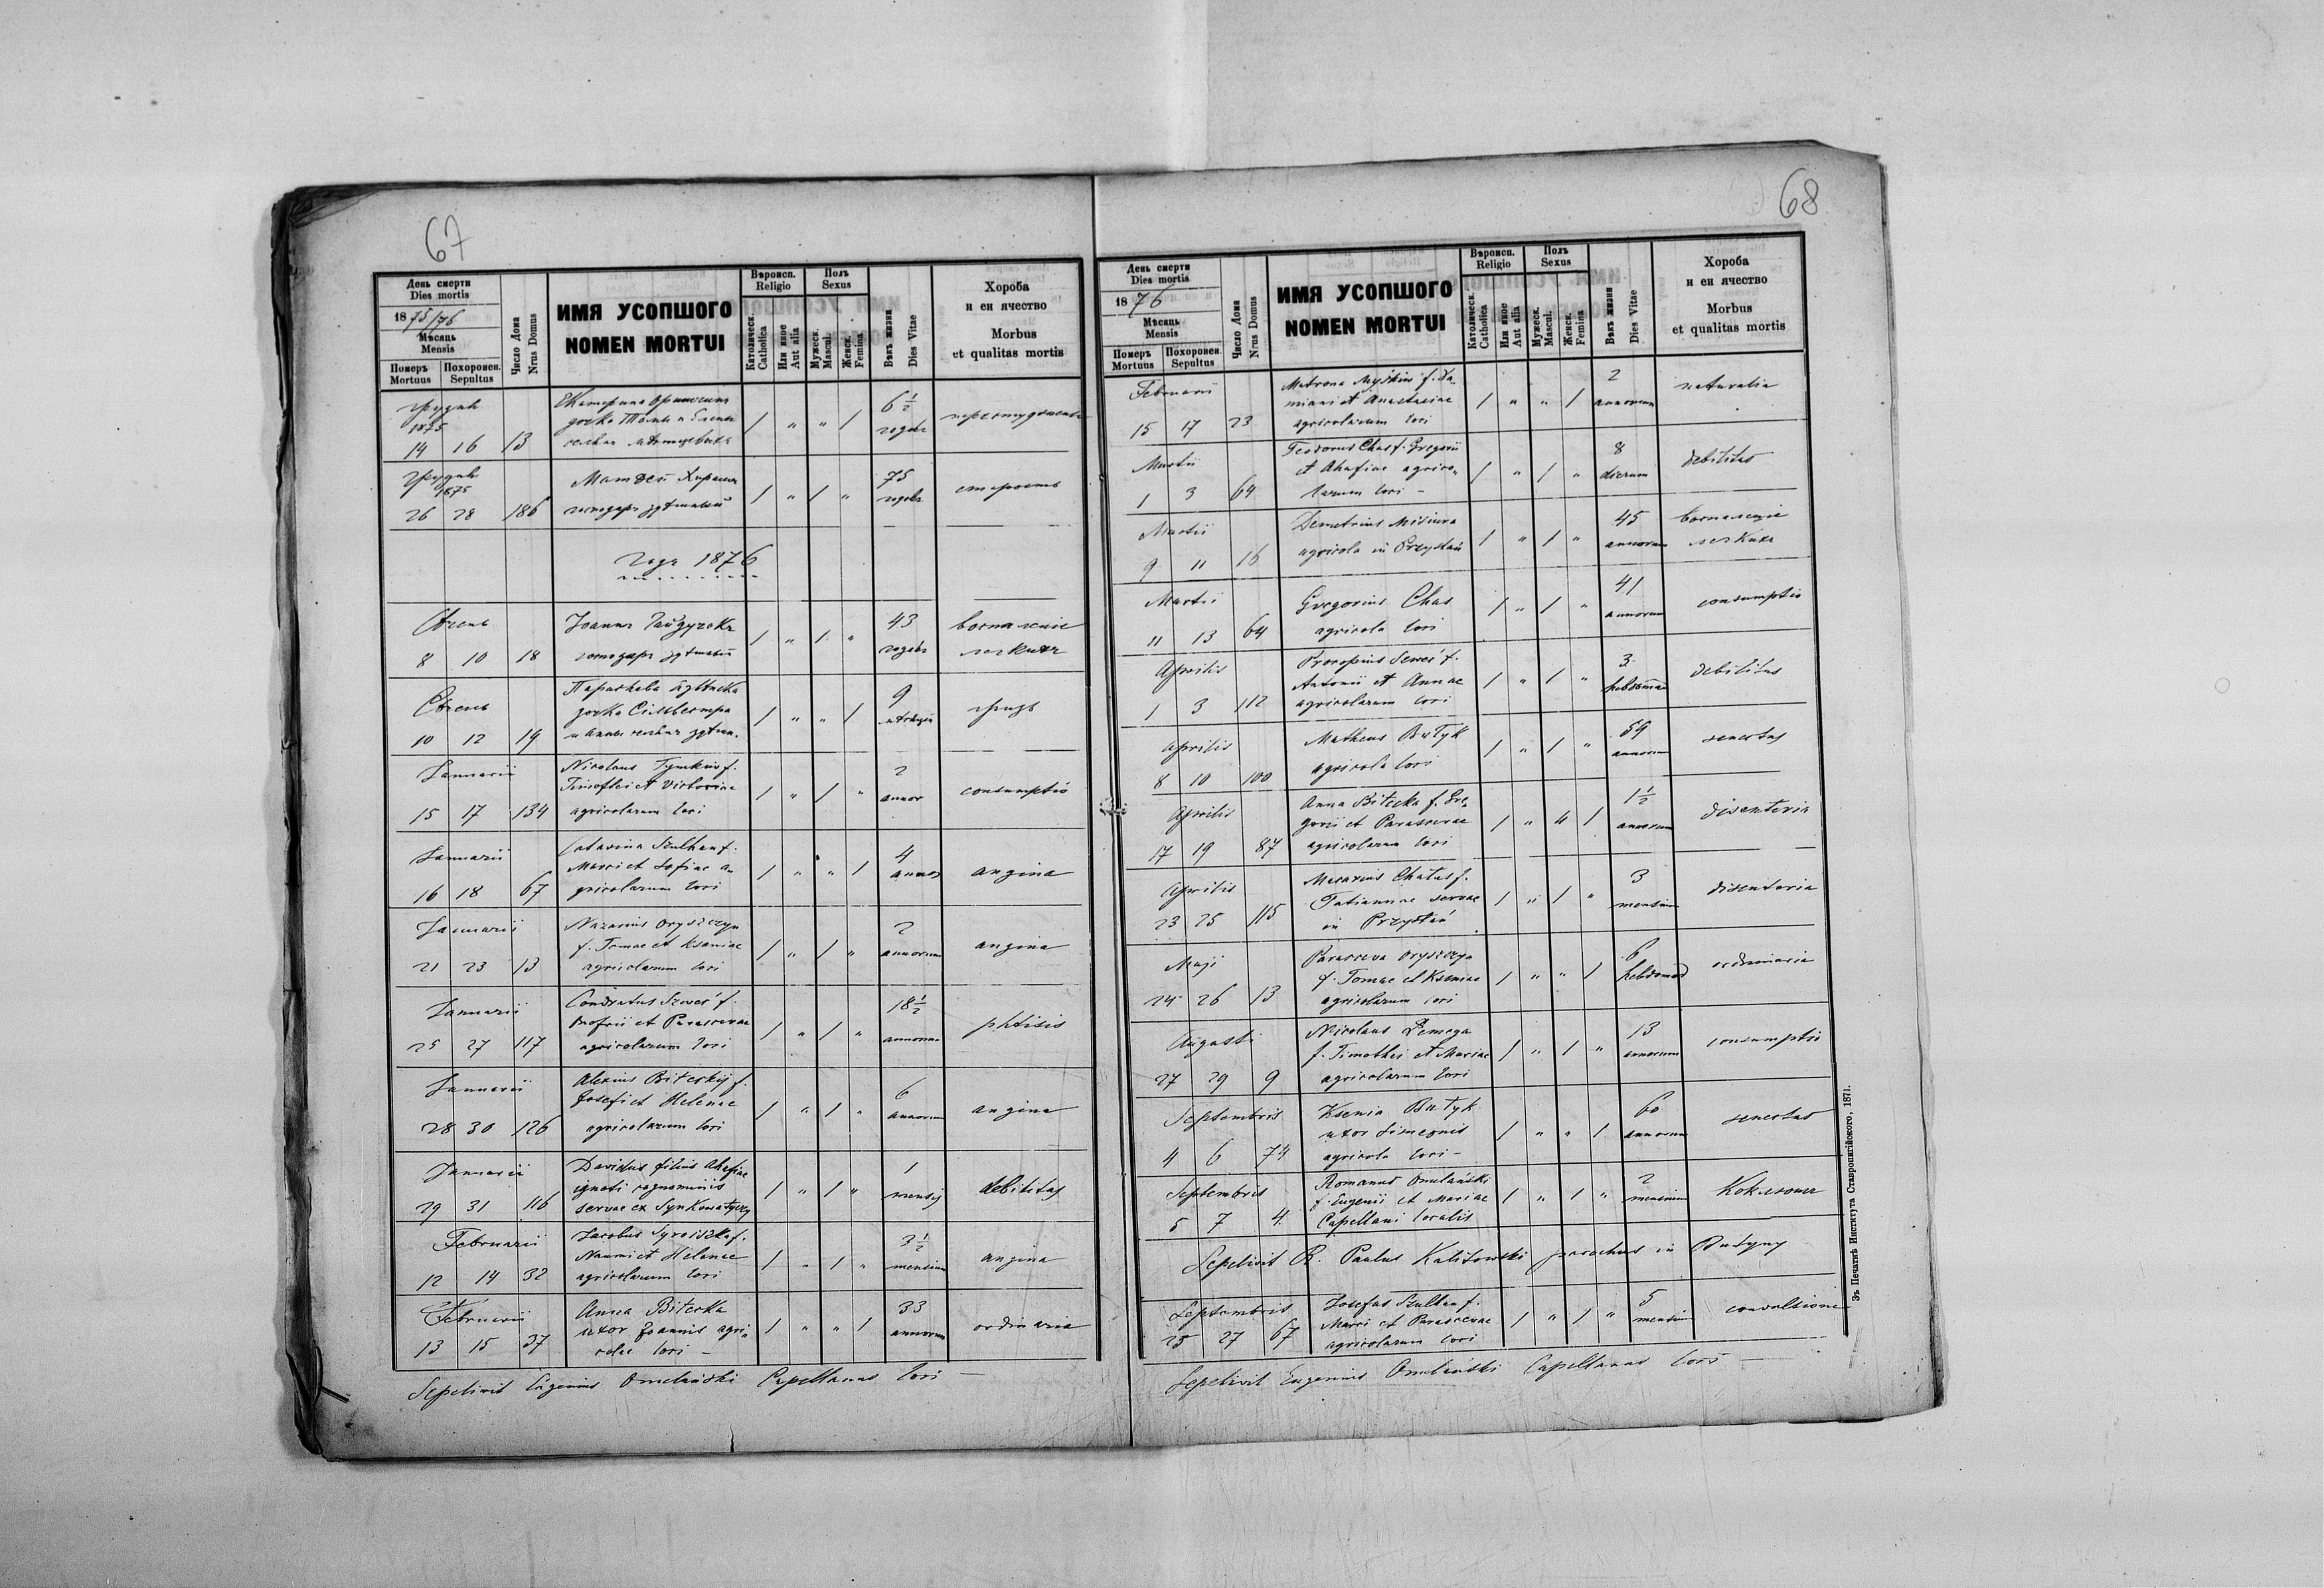 67
День смерти
Dies mortis
1875/76
Мѣсяць
Mensis
Померъ
Mortuus
Похоронен.
Sepultus
Число Дома
Nrus Domus
ИМЯ УСОПШОГО
NOMEN MORTUI
Вѣроисп.
Religio
Католическ.
Catholica
Или иное
Aut alia
Полъ
Sexus
Мужеск.
Mascul.
Женск.
Femina
Вѣкъ жизни
Dies Vitae
Хороба
и еи ячество
Morbus
et qualitas mortis
1875
14 16 13 / " " / 6 1/2
1875
26 28 186 / " / " 75 старость
Годъ 1876
Сѣчень
8 10 18 Іоаннъ / " / " 43 воспаленіе легкихъ
Сѣчень
10 12 19 дочка Сільвестра и Анны / " " / 9
Januarii
15 17 134 Nicolaus Tymkiw f.
Timothei et Victoriae
agricolarum loci / " / " 2 annor consumptio
Januarii
16 18 67 Catarina Szulhan f.
Marci et Sofiae a-
gricolarum loci / " " / 4 annor angina
Januarii
21 23 13 Nazarius Oryszczyn
f. Tomae et Kseniae
agricolarum loci / " / " 2 annorum angina
Januarii
25 27 117 Condratus Szwec f.
Onofrii et Parascevae
agricolarum loci / " / " 18 1/2 annorum phtisis
Januarii
28 30 126 Alexius Biteckij f.
Josefi et Helenae
agricolarum loci / " / " 6 annorum angina
Januarii
29 31 116 Davidus filius Ahafiae
ignoti cognominis
servae ex / " / " 1 mensis debilitas
Februarii
12 14 32 Jacobus Syroiszka f.
Naumi et Helenae
agricolarum loci / " / " 3 1/2 mensium angina
Februarii
13 15 37 Anna Bitecka
uxor Joannis agri-
colae loci – / " " / 33 annorum ordinaria
Sepelivit Eugenius Omelański Capellanus loci –
68
День смерти
Dies mortis
1876
Мѣсяць
Mensis
Померъ
Mortuus
Похоронен.
Sepultus
Число Дома
Nrus Domus
ИМЯ УСОПШОГО
NOMEN MORTUI
Вѣроисп.
Religio
Католическ.
Catholica
Или иное
Aut alia
Полъ
Sexus
Мужеск.
Mascul.
Женск.
Femina
Вѣкъ жизни
Dies Vitae
Хороба
и еи ячество
Morbus
et qualitas mortis
Februarii
15 17 23 Matrona f. Da-
miani et Anastasiae
agricolarum loci / " " / 2 annorum naturalis
Martii
1 3 64 Teodorus Chas f. Gregorii
et Ahafiae agrico-
larum loci – / " / " 8 dierum debilitas
Martii
9 11 16 Demetrius Misiura
agricola in Przystań / " / " 45 annorum воспаленіе легкихъ
Martii
11 13 64 Gregorius Chas
agricola loci / " / " 41 annorum consumptio
Aprilis
1 3 112 Procopius Szwec f.
Antonii et Annae
agricolarum loci / " / " 3 debilitas
Aprilis
8 10 100 Matheus Butyk
agricola loci / " / " 59 annorum senectus
Aprilis
17 19 87 Anna Bitecka f. Gre-
gorii et Parascevae
agricolarum loci / " " / 1 1/2 annorum disenteria
Aprilis
23 25 115 Macarius f.
Tatiannae servae
in Przystań / " / " 3 mensium disenteria
Maji
24 26 13 Parasceva Oryszczyn
f. Tomae et Kseniae
agricolarum loci / " " / 6 hebdomad ordinaria
Augusti
27 29 9 Nicolaus Demega
f. Timothei et Mariae
agricolarum loci / " / " 13 annorum consumptio
Septembris
4 6 74 Ksenia Butyk
uxor Simeonis
agricola loci – / " " / 60 annorum senectus
Septembris
5 7 4 Romanus Omelański
f. Eugenii et Mariae
Capellani localis / " / " 2 mensium
Sepelivit R. Paulus Kalitowski parochus in Butyny
Septembris
25 27 67 Josefus Szulhan f.
Marci et Parascevae
agricolarum loci / " / " 5 mensium convulsiones
Sepelivit Eugenius Omelański Capellanus loci –
Зъ Печатнѣ Института Ставропигійского, 1871.